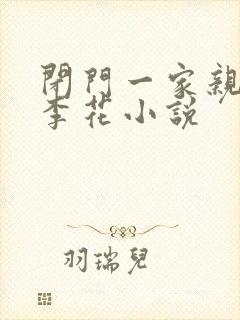 閉門一家親
李花小説
羽瑞兒